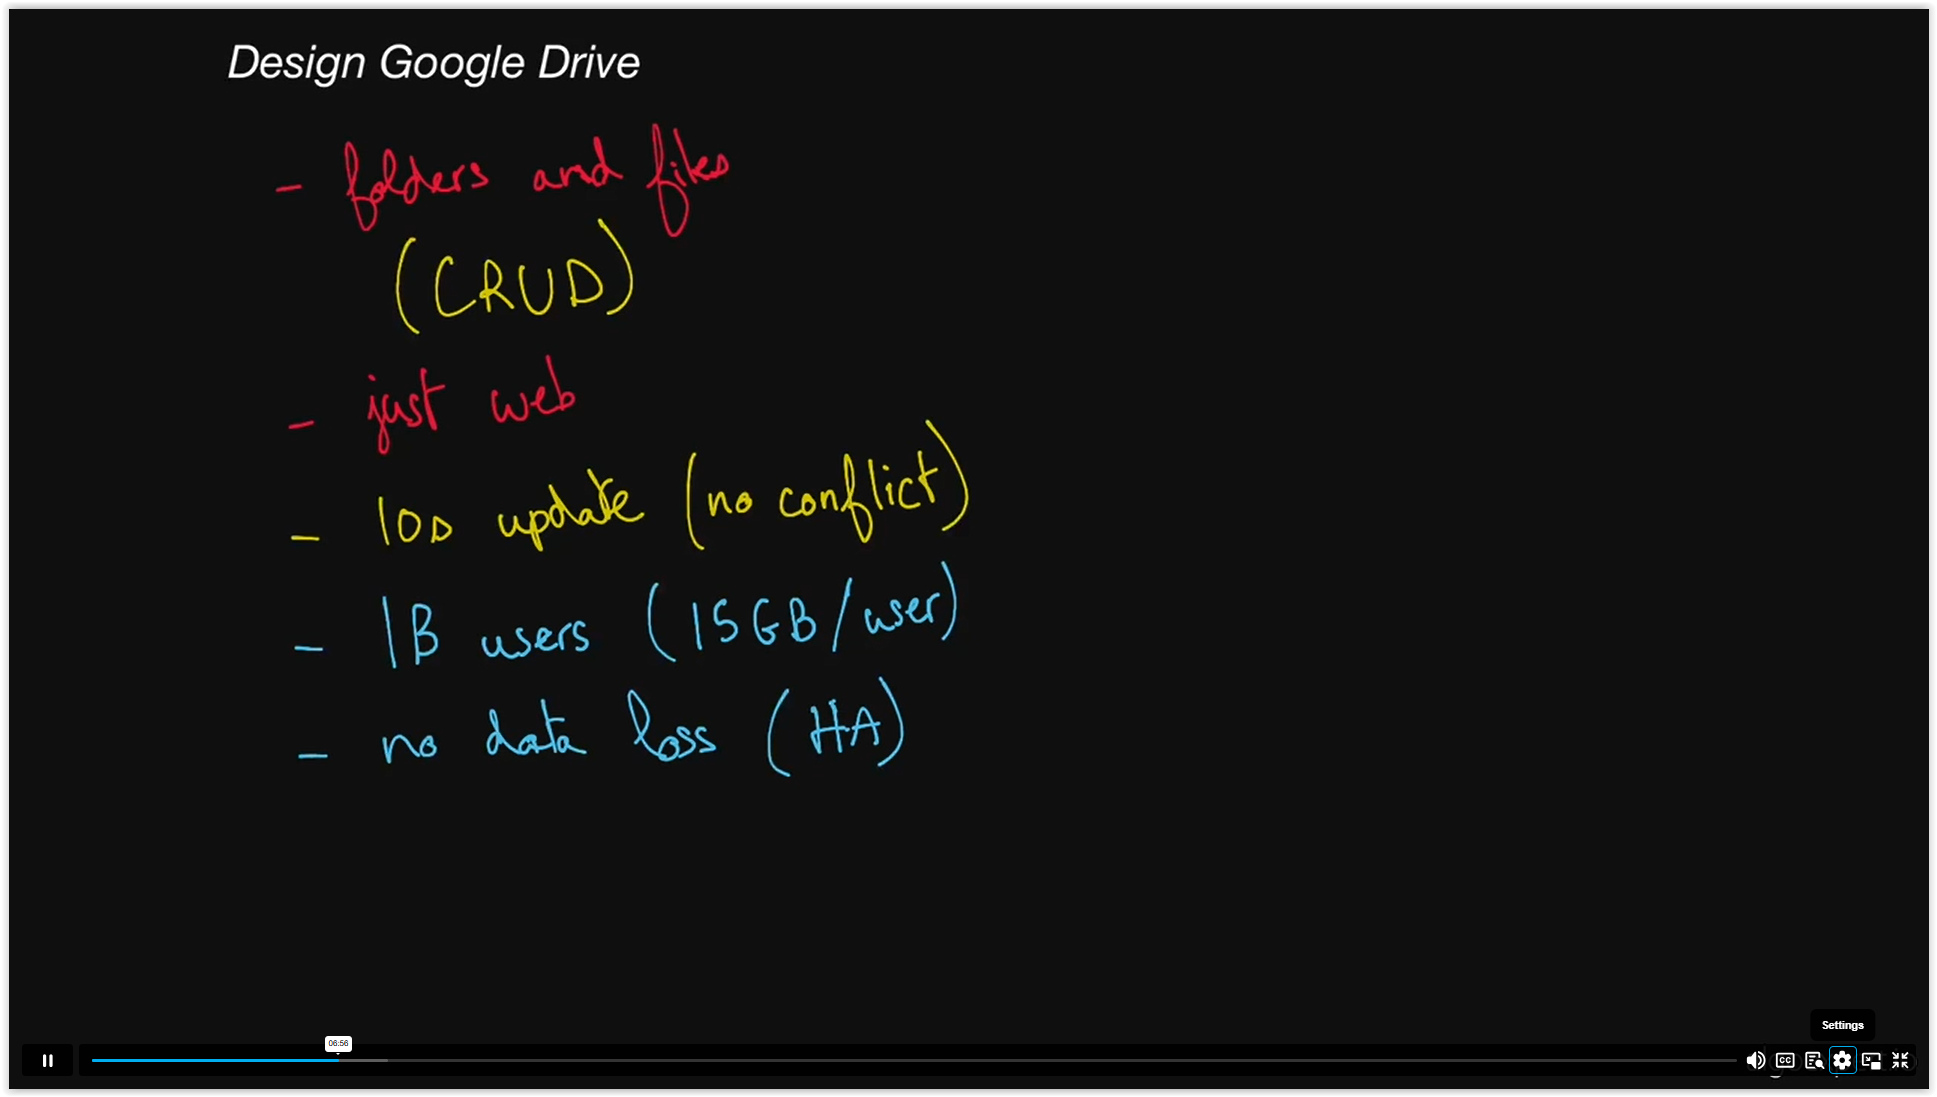 Design Google Drive
- folders and files
(CRUD)
- just web
- 10s update (no conflict)
- 1B users (15GB/user)
- no data loss (HA)
Settings
06:56
CC